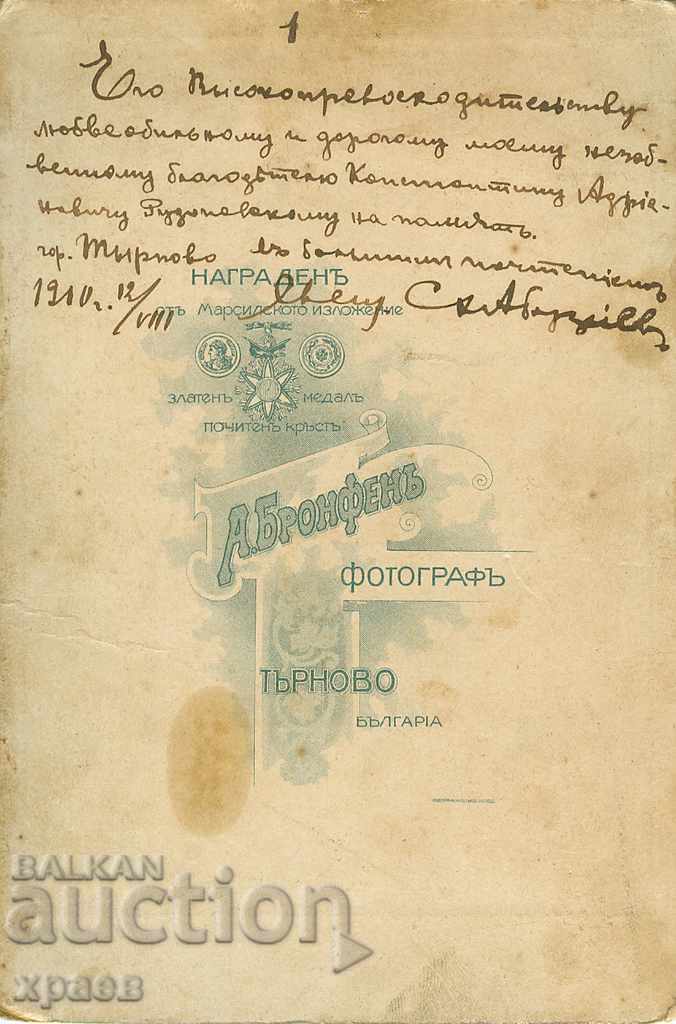 1
Его Высокопревосходительству
любвеобильному и дорогому моему незаб-
венному благодѣтелю Константину Адріа-
новичу на память.
гор. Тырново съ большимъ почтеніемъ
1910 г. 12/VIII Свещ.
НАГРАДЕНЪ
отъ Марсилското изложение
златенъ медалъ
почитенъ кръстъ
А. БРОНФЕНЪ
ФОТОГРАФЪ
ТЪРНОВО
БЪЛГАРІА
BALKAN
auction
храев